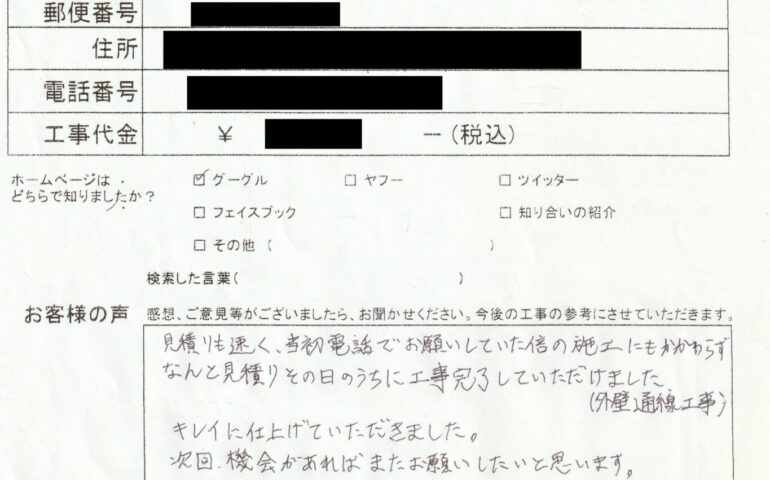 郵便番号
住所
電話番号
工事代金 ¥ ー(税込)
ホームページは
どちらで知りましたか？
☑ グーグル □ ヤフー □ ツイッター
□ フェイスブック □ 知り合いの紹介
□ その他 ( )
検索した言葉( )
お客様の声 感想、ご意見等がございましたら、お聞かせください。今後の工事の参考にさせていただきます。
見積りも速く、当初電話でお願いしていた倍の施工にもかかわらず
なんと見積りその日のうちに工事完了していただけました
(外壁通線工事)
キレイに仕上げていただきました。
次回、機会があればまたお願いしたいと思います。